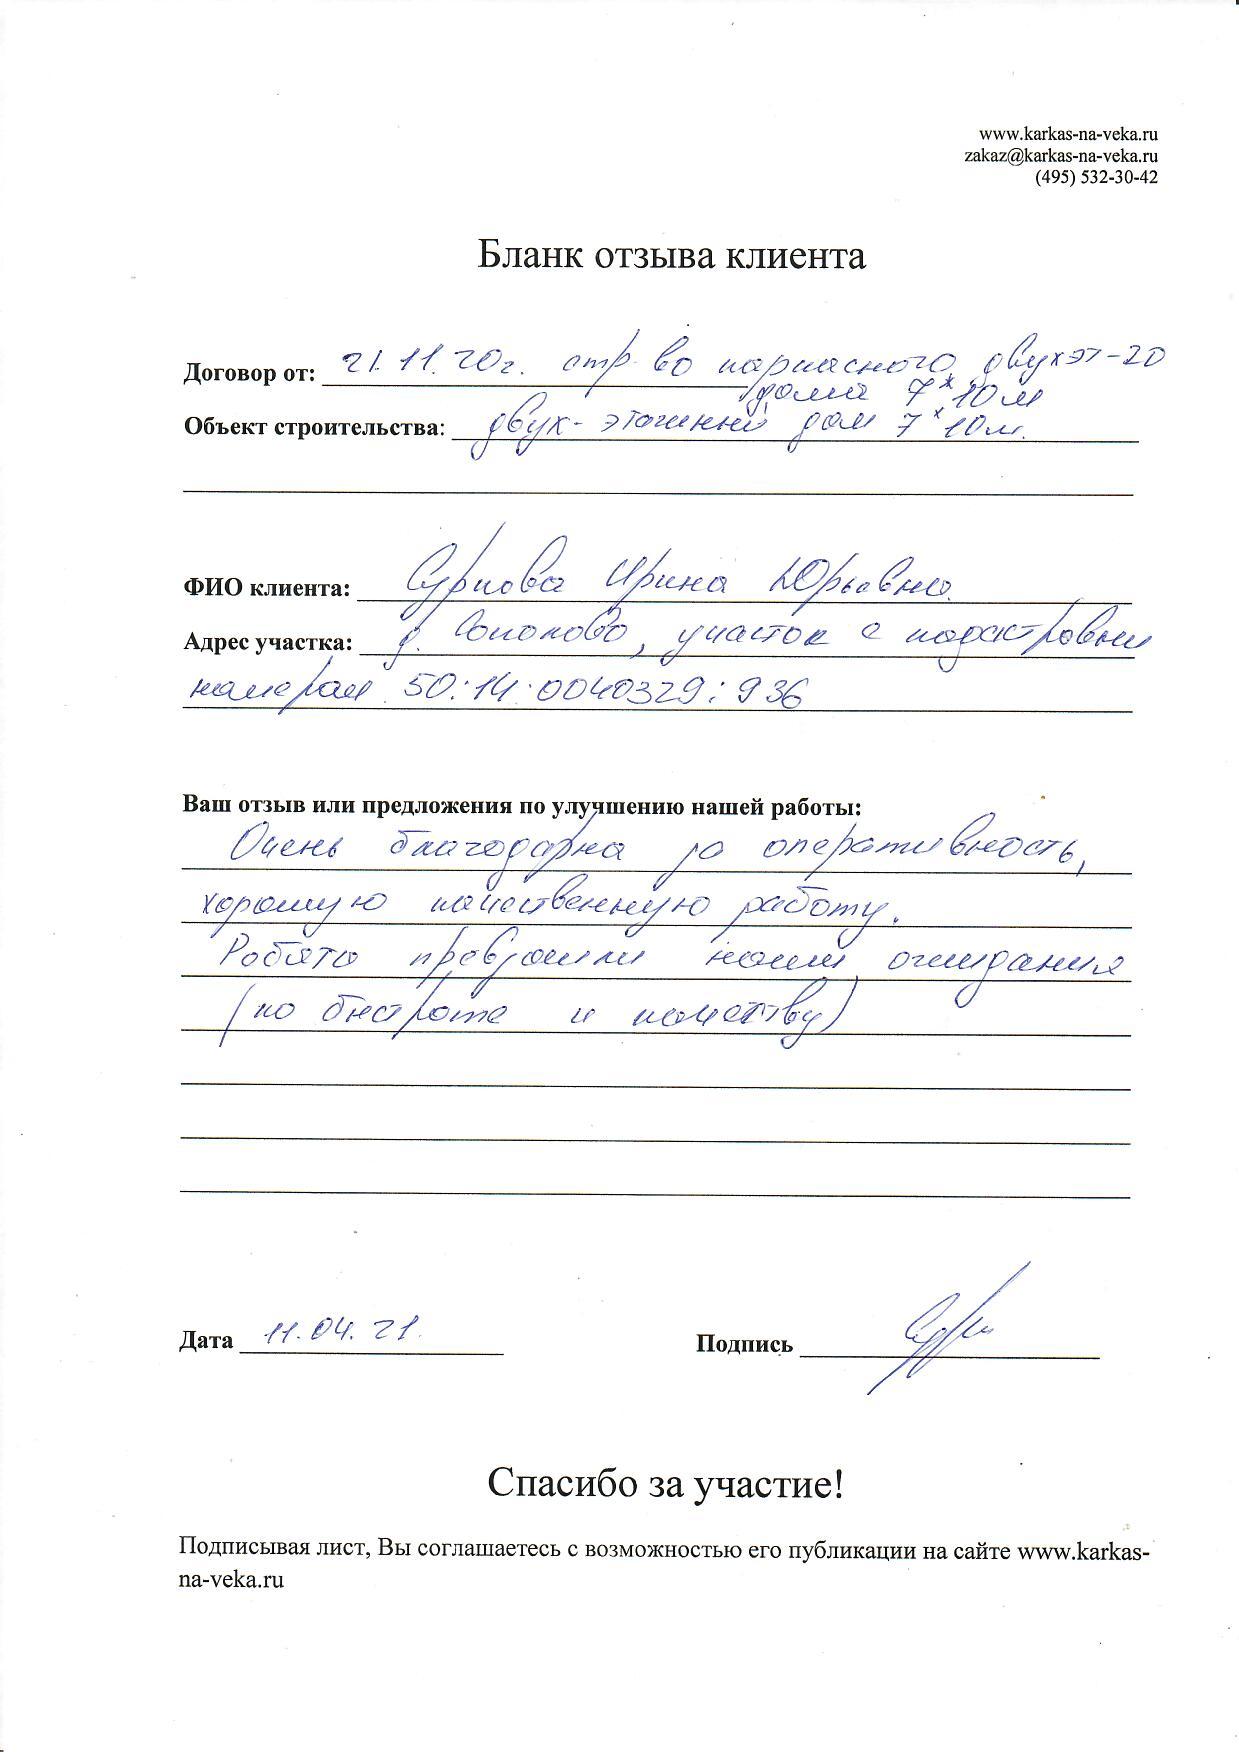 www.karkas-na-veka.ru
zakaz@karkas-na-veka.ru
(495) 532-30-42
Бланк отзыва клиента
Договор от: 21.11.20г. стр-во каркасного двухэт-го
дома 7*10м
Объект строительства: двух-этажный дом 7х10м.
ФИО клиента: Суркова Ирина Юрьевна.
Адрес участка: д. Соколово, участок с кадастровым
номером 50:14:0040329:936
Ваш отзыв или предложения по улучшению нашей работы:
Очень благодарна за оперативность,
хорошую качественную работу.
Робята превзошли наши ожидания
(по быстроте и качеству)
Дата 11.04.21.
Подпись
Спасибо за участие!
Подписывая лист, Вы соглашаетесь с возможностью его публикации на сайте www.karkas-
na-veka.ru